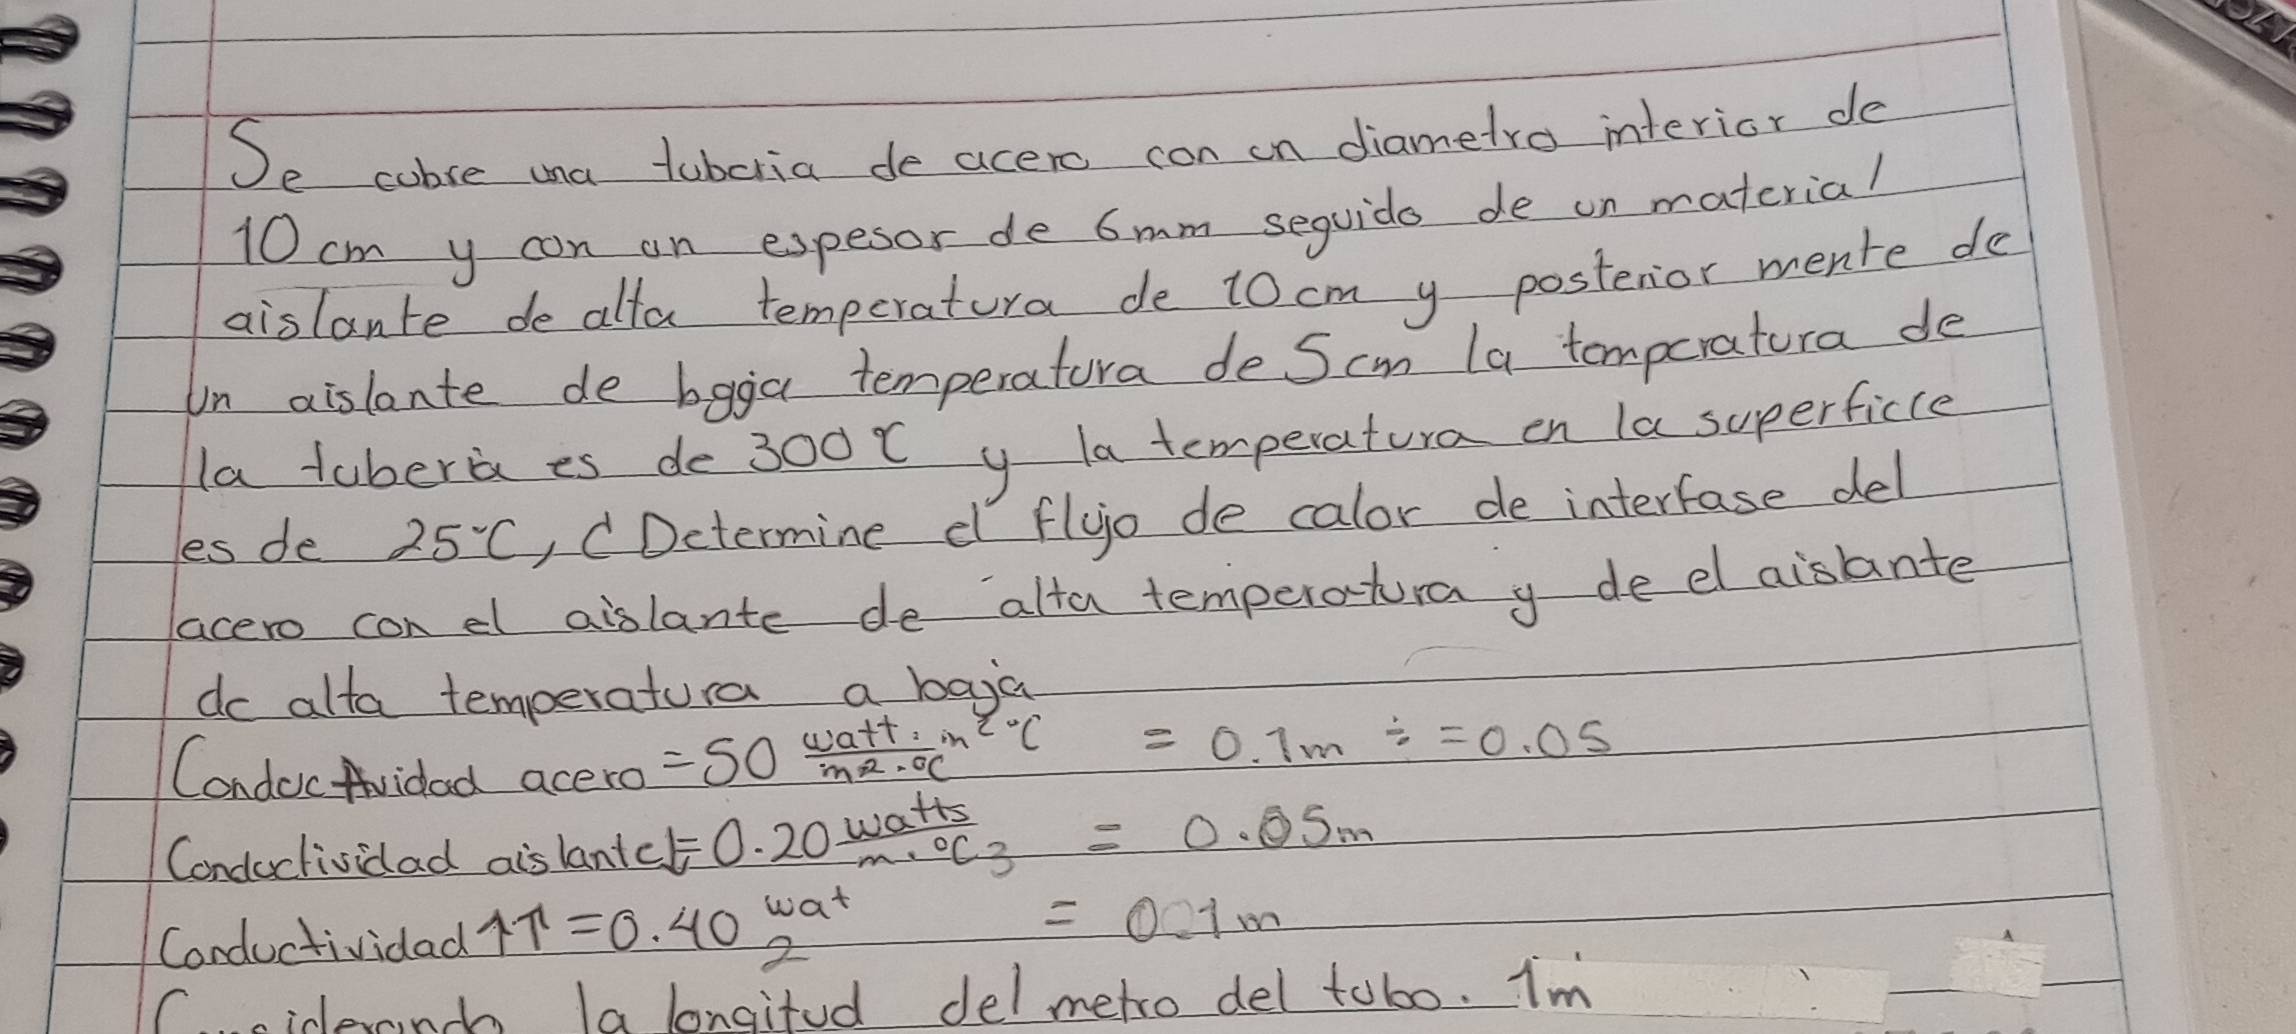 Se cubre una tuberia de acero con un diametro interior de
10 cm y con un espesor de 6mm seguido de un material
aislante de alta temperatura de 10 cm y posterior mente de
un aislante de baja temperatura de 5 cm la temperatura de
la tuberia es de 300°C y la temperatura en la superficie
es de 25°C, Determine el flujo de calor de interfase del
acero con el aislante de alta temperatura y de el aislante
de alta temperatura a baja
Conductividad acero = 50 watt · m² °C / m² · °C = 0.1m ÷ = 0.05
Conductividad aislante = 0.20 watts / m · °C 3 = 0.05m
Conductividad ↑T = 0.40 wat 2 = 0.1m
Considerando la longitud del metro del tubo. 1m